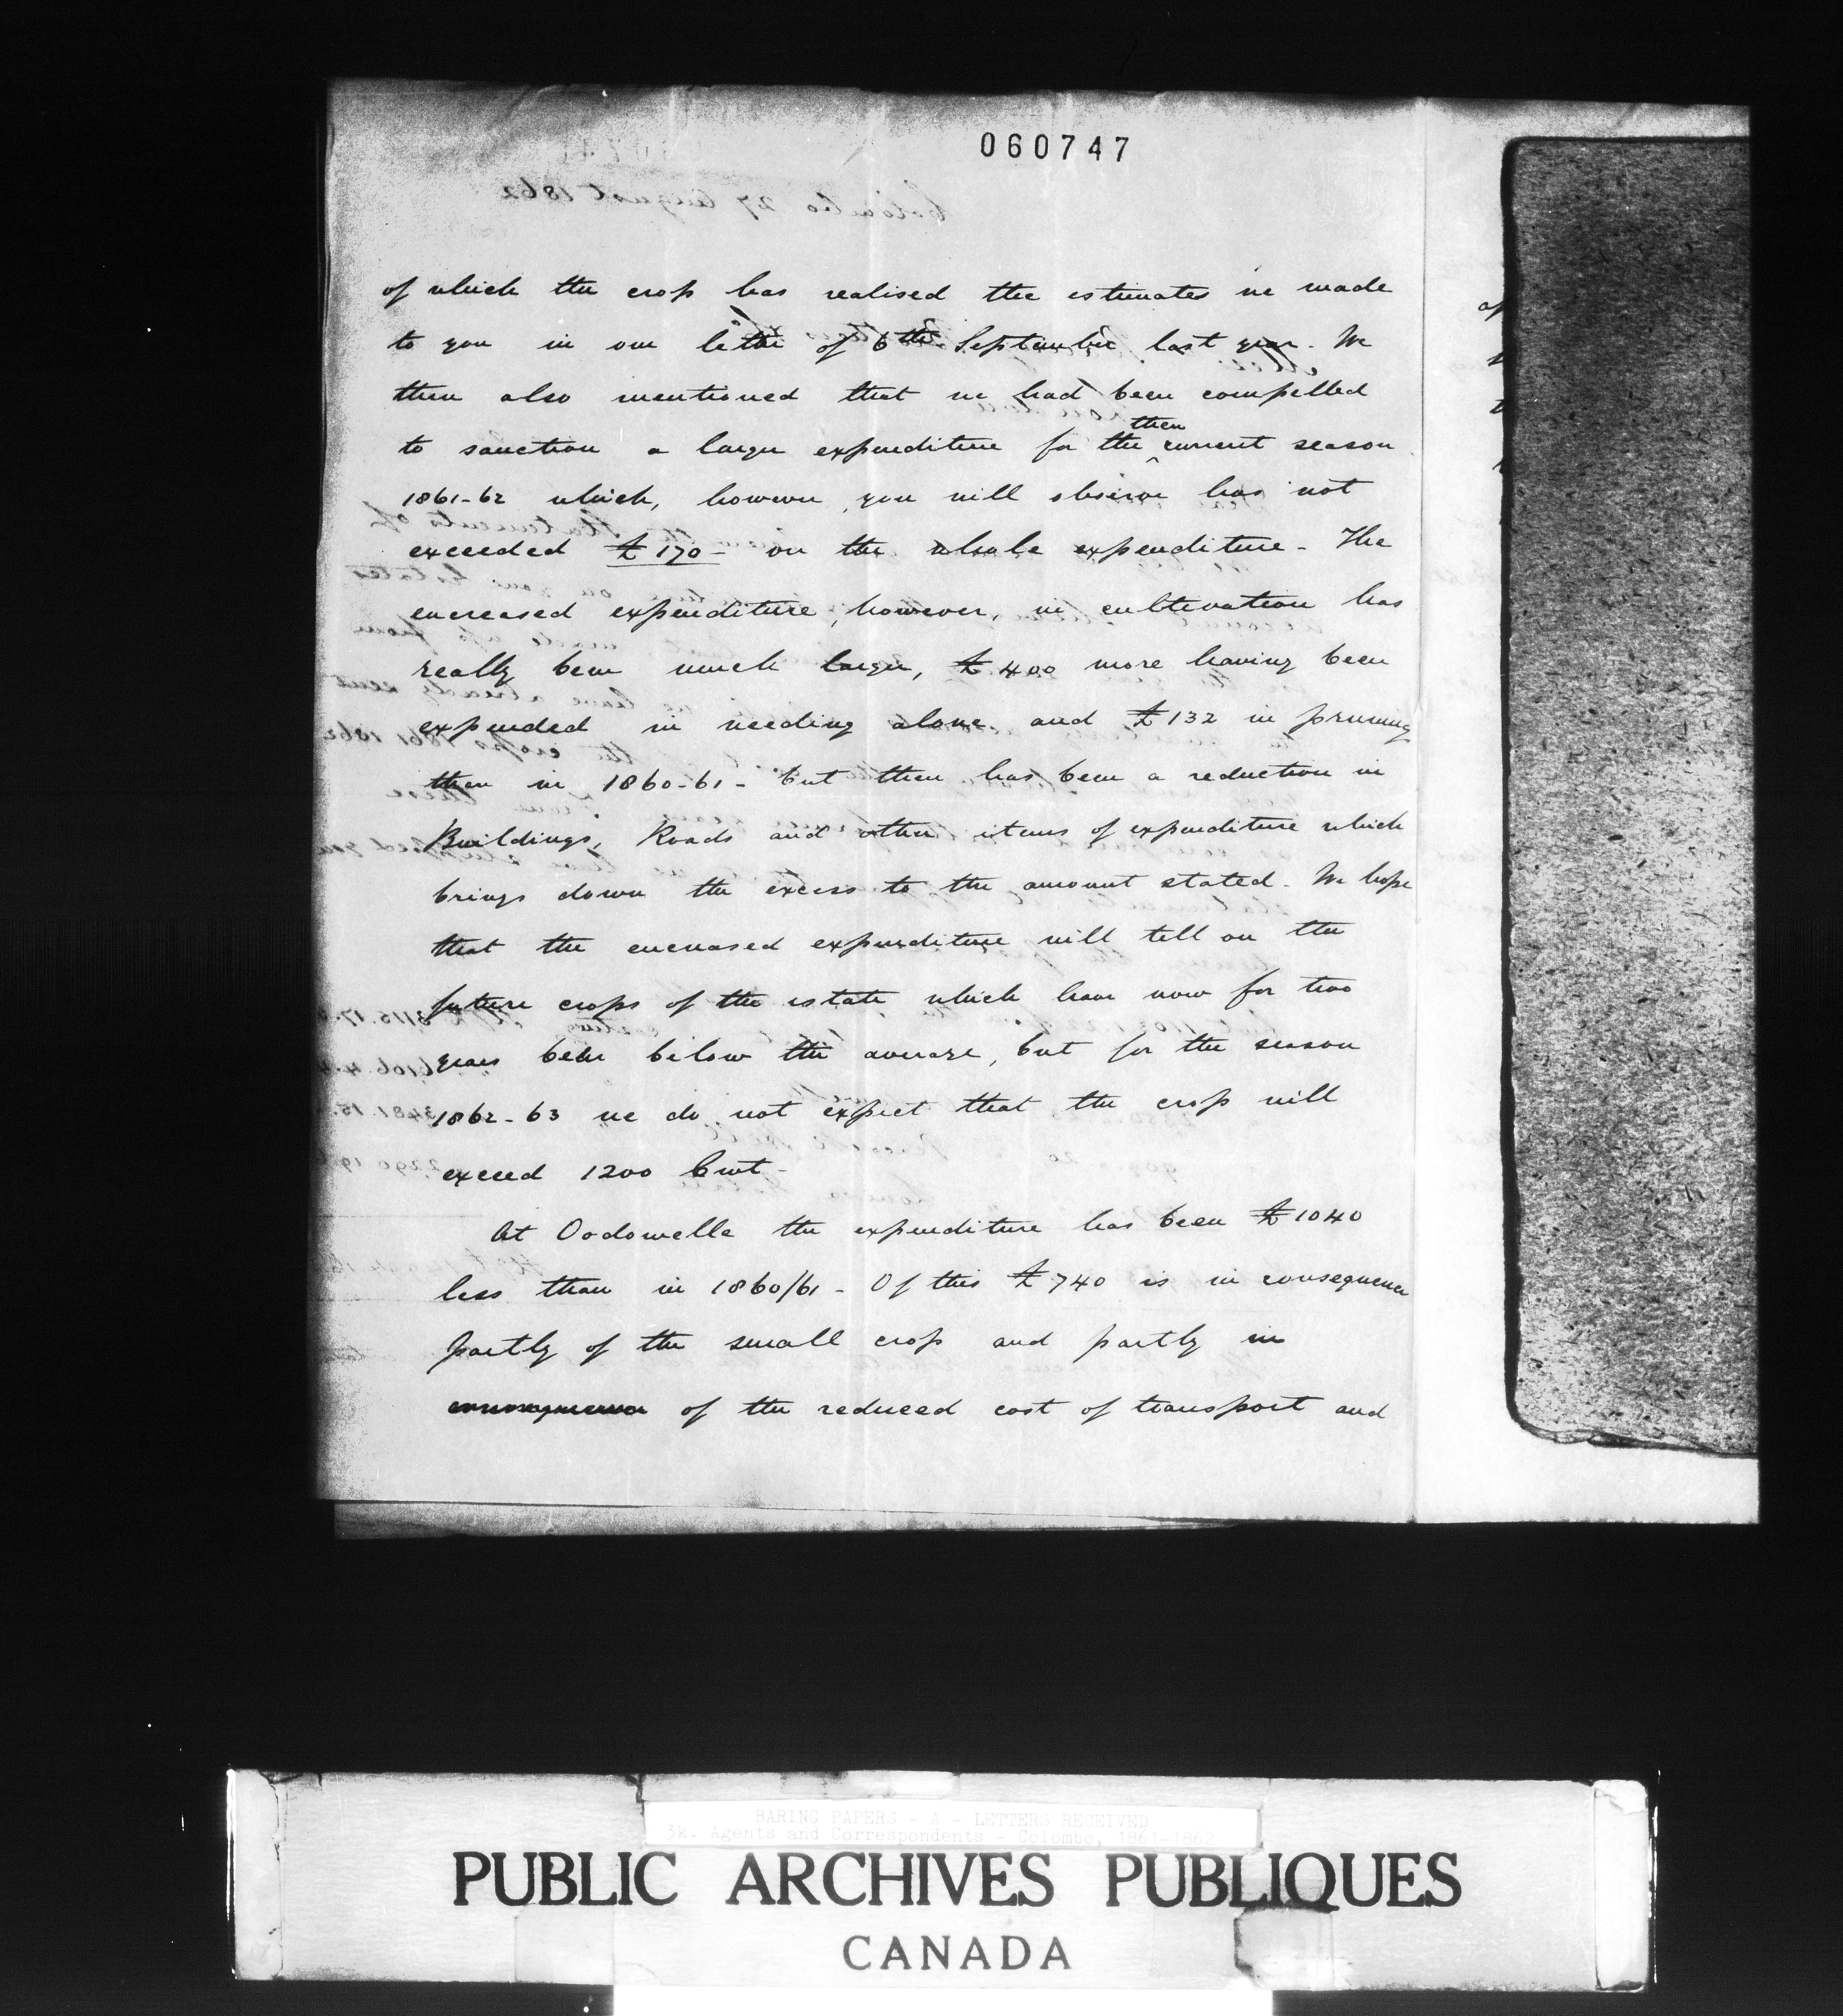 060747
of which the crop has realised the estimates we made
to you in our letter of 6th September last year. We
then also mentioned that we had been compelled
to sanction a larger expenditure for the then current season
1861-62 which, however, you will observe has not
exceeded £170 - on the whole expenditure - The
encreased expenditure, however, in cultivation has
really been much larger, £400 more having been
expended in weeding alone and £132 in pruning
than in 1860-61 - but there has been a reduction in
Buildings, Roads and other items of expenditure which
brings down the excess to the amount stated - We hope
that the encreased expenditure will tell on the
future crops of the estate which have now for two
years been below the average, but for the season
1862-63 we do not expect that the crop will
exceed 1200 Cwt -
At Oodowelle the expenditure has been £1040
less than in 1860/61 - Of this £740 is in consequence
partly of the small crop and partly in
consequence of the reduced cost of transport and
BARING PAPERS - A - LETTERS RECEIVED
3k. Agents and Correspondents - Colombo, 1861-1862
PUBLIC ARCHIVES PUBLIQUES
CANADA